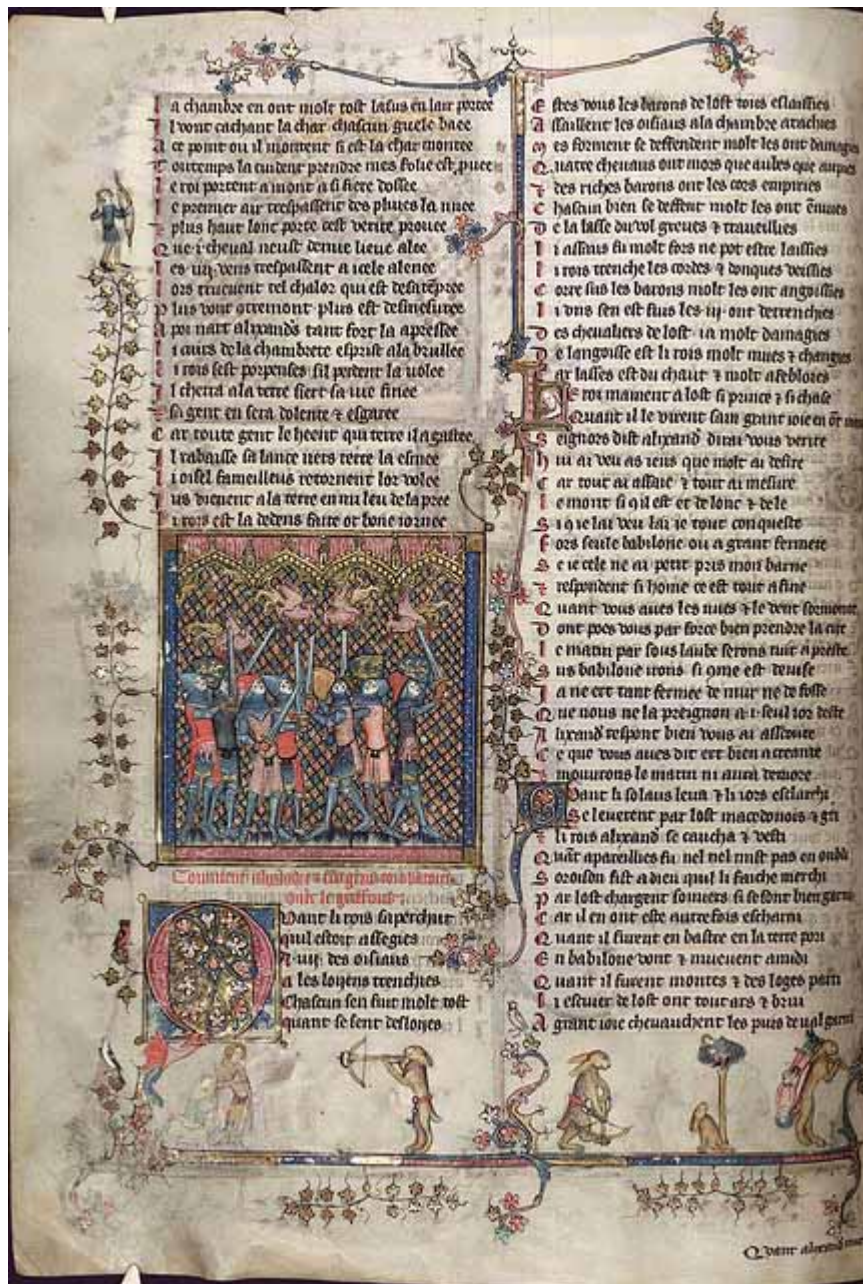 l a chambre en ont molt tost lasus en lair portee
I l vont cachant la char chascun guele baee
A ce point ou il montent si est la char montee
T outemps la cuident prendre mes folie est
l e roi portent amont a si fiere
l e premier air trespassent des pluies la nuee
plus haut lont porte cest verite provee
Q ue .i. cheval neust demie lieue alee
l es .iiij. vens trespassent a icele alenee
l ors truevent tel chalor qui est
P lus vont plus est desmesuree
A poi nart alixandʼ tant fort la apressee
l i cuirs de la chambrete esprist a la brullee
l i rois sest porpenses sil perdent la volee
I l cherra a la terre siert sa vie finee
si gent en sera dolente ⁊ esgaree
C ar toute gent le heent qui terre il a gastee
I l rabaisse sa lance vers terre la
l i oisel fameilleus retornent lor volee
I us vienent a la terre en mi leu de la pree
l i rois est la dedens faite ot bone iornee
Quant li rois saperchut
quil estoit assegies
A .viij. des oisiaus
a les loiiens trenchies
Chascun sen fuit molt tost
quant se sent desloies
E stes vous les barons de lost tous eslaissies
A ssaillent les oisiaus a la chambre atachies
m es forment se deffendent molt les ont damagies
Q uatre chevaus ont mors que
⁊ des riches barons ont les cors empiries
C hascun bien se deffent molt les ont
D e la lasse du vol greves ⁊ traveillies
l i assaus fu molt fors ne pot estre laissies
l i rois trenche les cordes ⁊ donques veissies
C orre sus les barons molt les ont angoissies
l i .ons sen est fuis les .iij. ont detrenchies
D es chevaliers de lost ia molt damagies
D e langoisse est li rois molt mues ⁊ changies
C ar lasses est du chaut ⁊ molt afeblores
L e roi mainent a lost si prince ⁊ si chase
Quant il le virent sain grant ioie en
S eignors dist alixandʼ dirai vous verite
h ui ai veu as iens que molt ai desire
C ar tout ai assaie ⁊ tout ai mesure
l e mont si qil est et de lonc ⁊ de le
S i qie lai veu lai ie tout conqueste
F ors seule babilone ou a grant fermete
S e ie cele ne ai petit pris mon barne
⁊ respondent si home ce est tout afine
Q uant vous aves les nues ⁊ le vent
D ont poes vous par force bien prendre la cite
l e matin par sous laube serons tuit apreste
S us babilone irons si 9me est devise
I a ne ert tant fermee de mur ne de fosse
Q ue nous ne la preignon a .i. seul ior deste
A lixandʼ respont bien vous ai
C e que vous aves dit ert bien acreante
⁊ mouvrons le matin ni aura demore
Quant li solaus leva ⁊ li iors esclarchi
Se leverent par lost macedonois ⁊
⁊ li rois alixandʼ se caucha ⁊ vesti
Q uāt apareillies fu nel mist pas en oubli
S oroison fist a dieu quil li faiche merchi
P ar lost chargent somiers si se sont bien garni
C ar il en ont este autre fois escharni
Q uant il furent en bastre en la terre pori
E n babilone vont ⁊ muevent a midi
Q uant il furent montes ⁊ des loges parti
l i escuier de lost ont tout ars ⁊ brui
A grant ioie chevauchent les puis de val garni
Quant